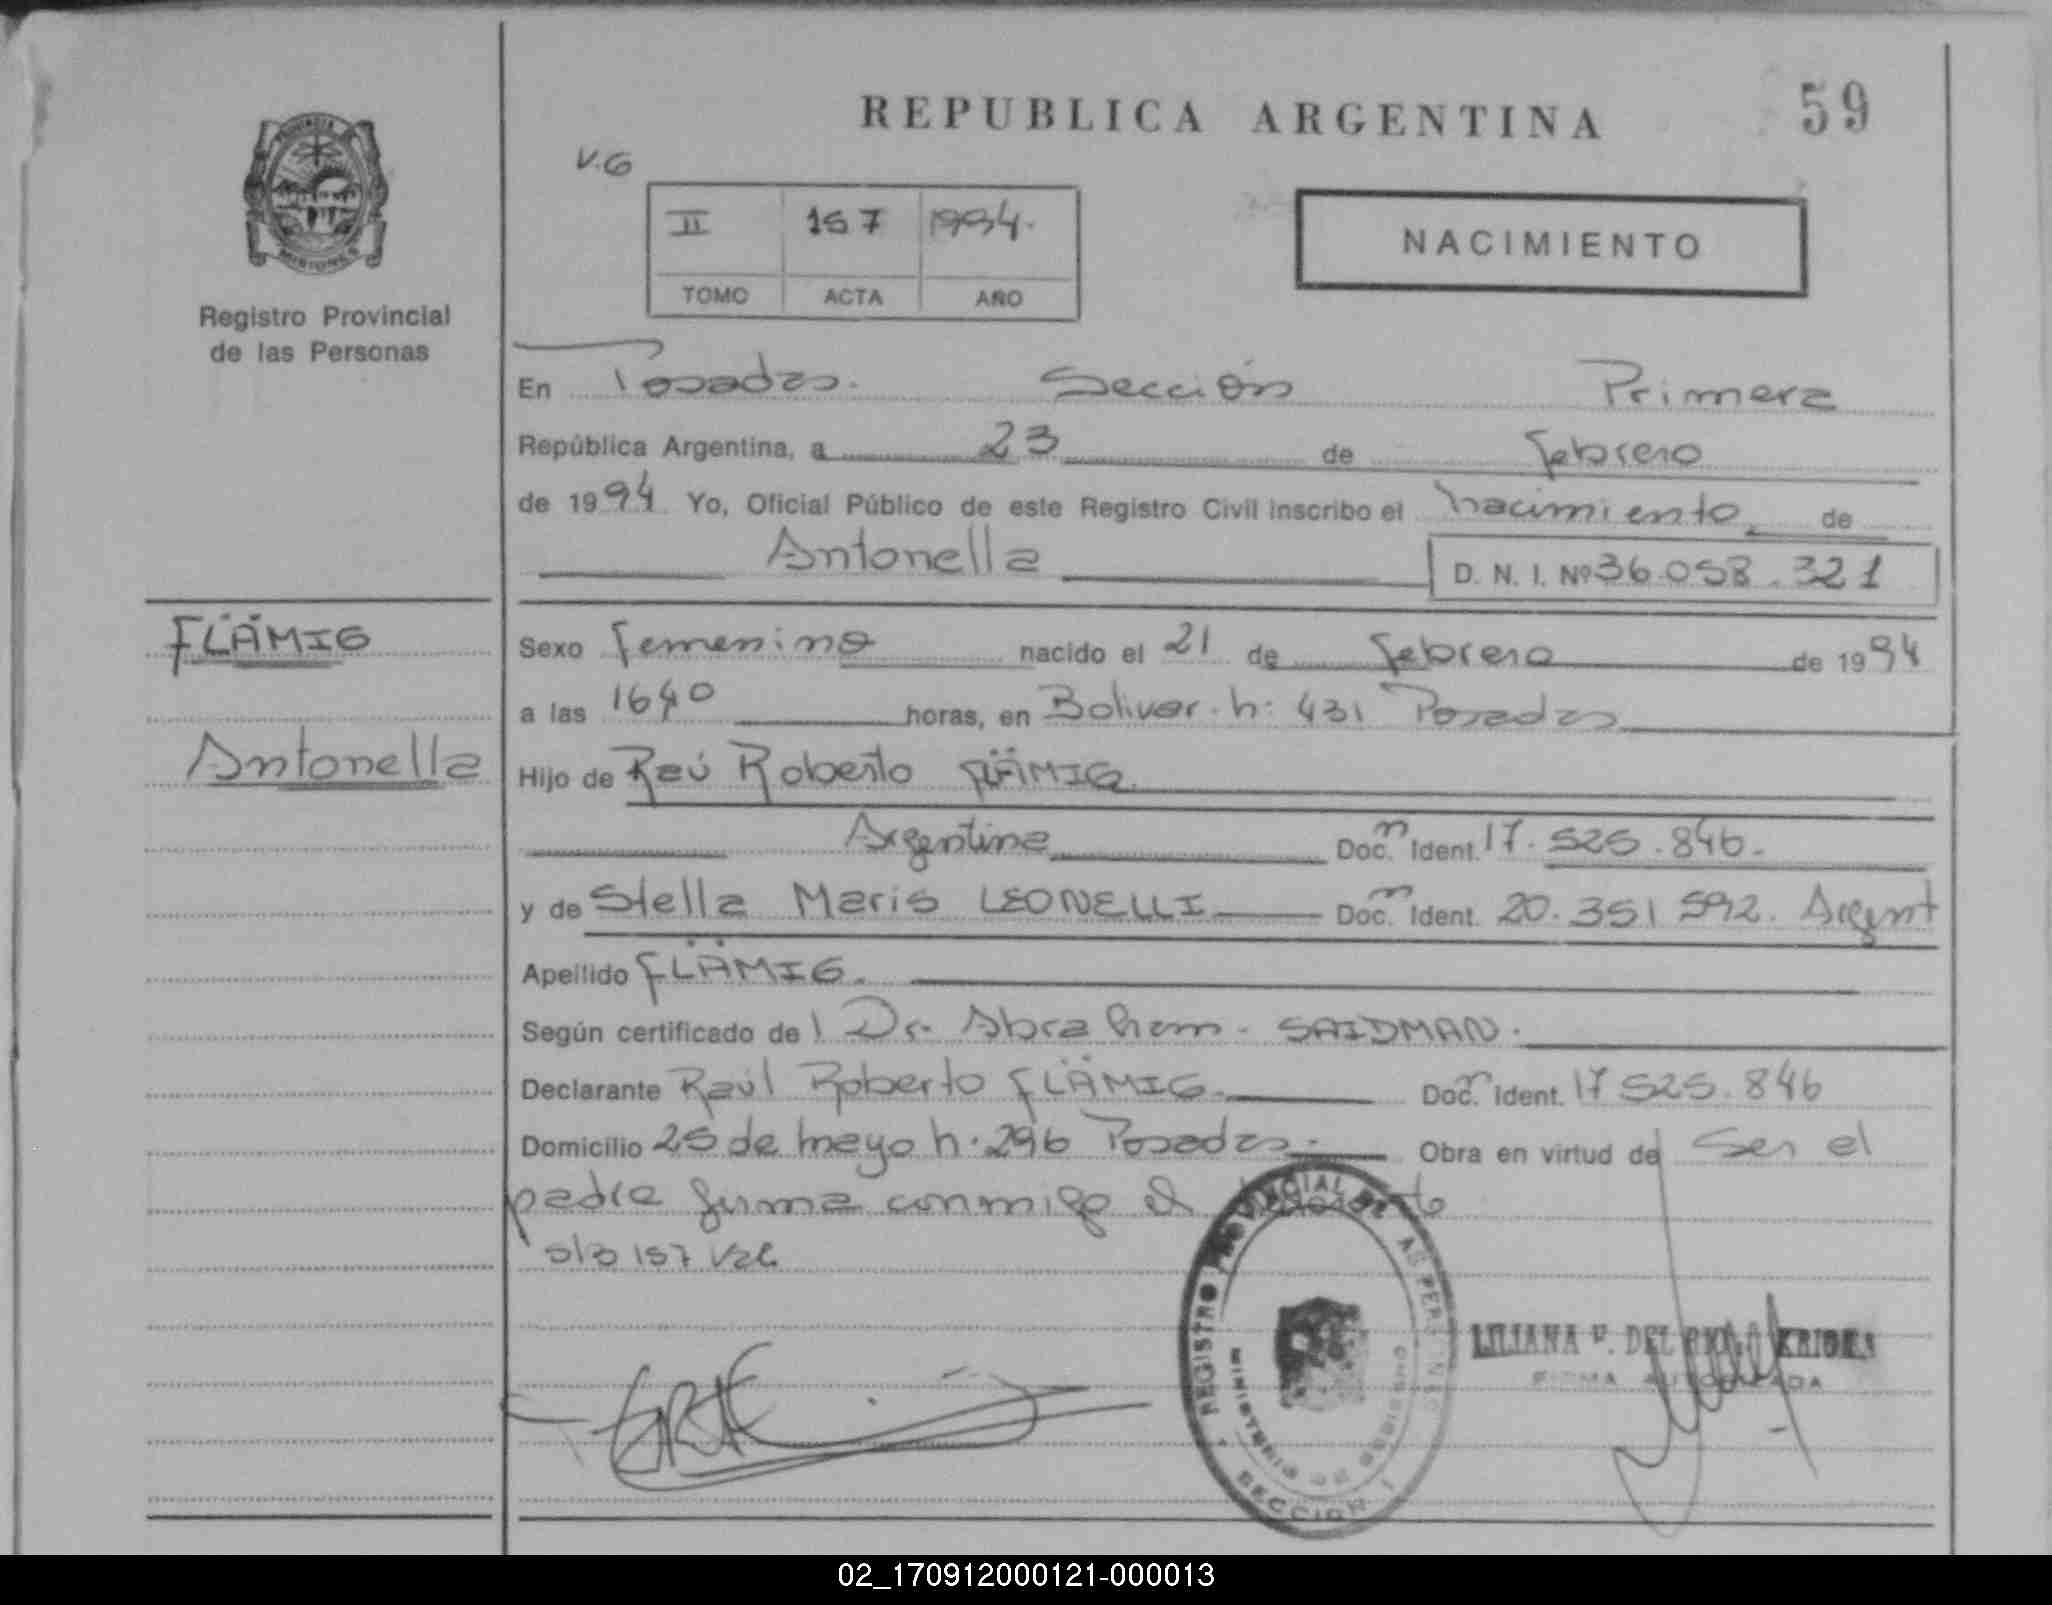 REPUBLICA ARGENTINA
59
V.G
II 157 1994.
TOMO ACTA AÑO
NACIMIENTO
PROVINCIA DE MISIONES
Registro Provincial
de las Personas
En Posadas. Sección Primera
República Argentina, a 23 de febrero
de 1994 Yo, Oficial Público de este Registro Civil inscribo el nacimiento de
Antonella D. N. I. Nº 36.058.321
FLÄMIG
Antonella
Sexo femenino nacido el 21 de febrero de 1994
a las 1640 horas, en Bolivar. n: 431 Posadas
Hijo de Raú Roberto FLÄMIG
Argentina Doc. Ident. 17.525.846.
y de Stella Maris LEONELLI Doc. Ident. 20.351 592. Argent
Apellido FLÄMIG.
Según certificado de Dr. Abraham. SAIDMAN.
Declarante Raúl Roberto FLÄMIG. Doc. Ident. 17 525.846
Domicilio 25 de mayo n. 296 Posadas. Obra en virtud de Ser el
padre firma conmigo el
157
REGISTRO PROVINCIAL DE LAS PERSONAS
MINISTERIO DE GOBIERNO
SECCION I
LILIANA DEL
FIRMA AUTORIZADA
02_170912000121-000013